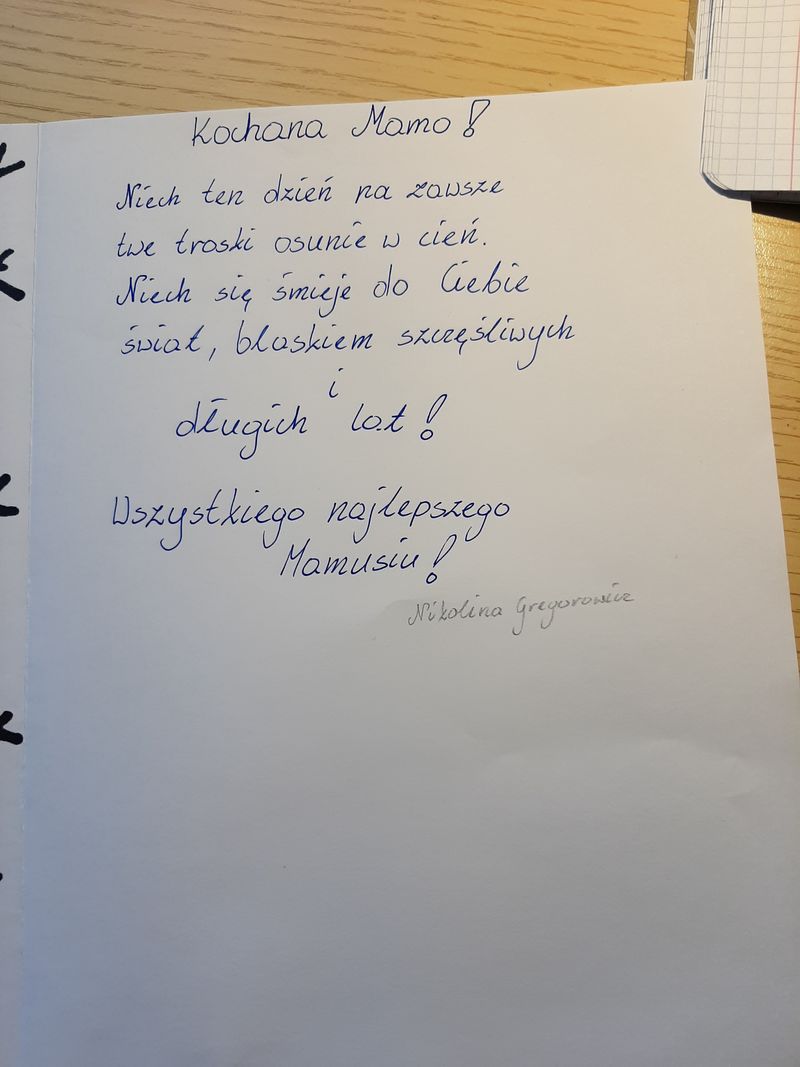 Kochana Mamo!
Niech ten dzień na zawsze
twe troski osunie w cień.
Niech się śmieje do Ciebie
świat, blaskiem szczęśliwych
i
długich lat!
Wszystkiego najlepszego
Mamusiu!
Nikolina Gregorowicz